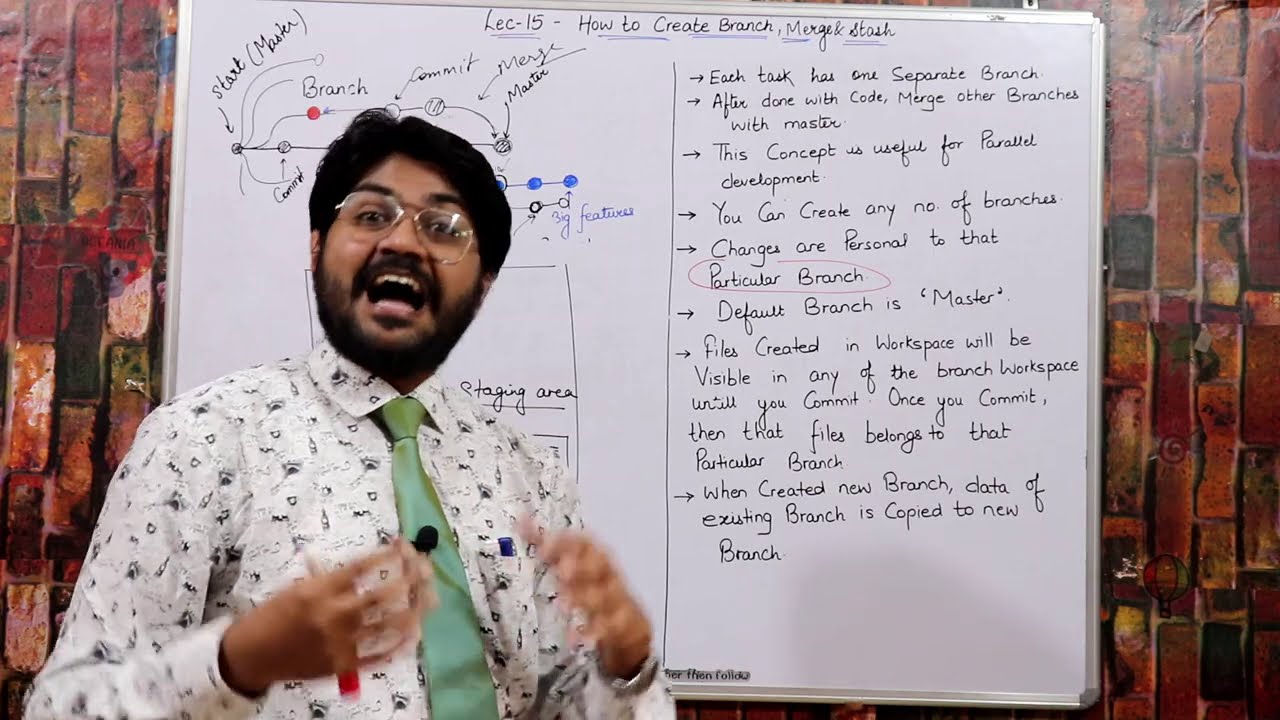 Lec-15 - How to Create Branch, Merge & Stash
Start (Master)
Branch
Commit
Merge
Master
Commit
Big features
Staging area
→ Each task has one Separate Branch.
→ After done with Code, Merge other Branches
with master.
→ This Concept is useful for Parallel
development.
→ You Can Create any no. of branches.
→ Changes are Personal to that
Particular Branch
→ Default Branch is 'Master'.
→ Files Created in Workspace will be
Visible in any of the branch Workspace
untill you Commit. Once you Commit,
then that files belongs to that
Particular Branch
→ When Created new Branch, data of
existing Branch is Copied to new of
Branch.
her then follow
OCEANIA